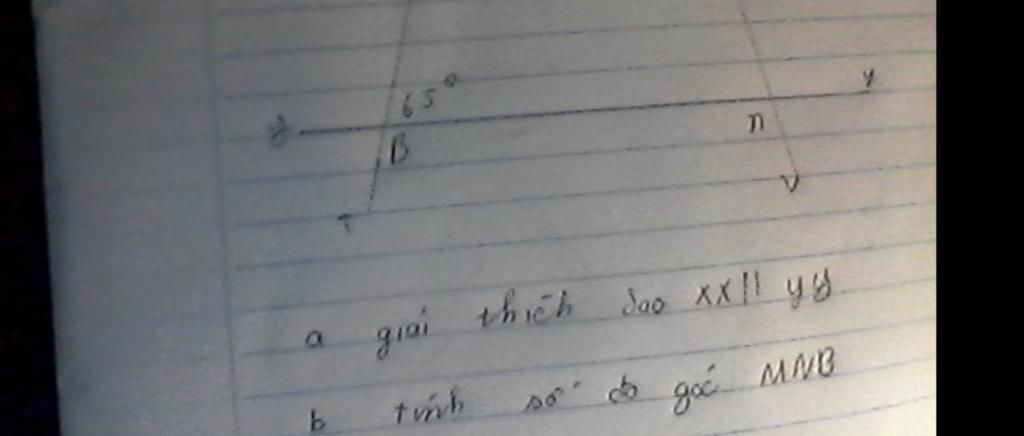 y
65°
B
n
T
V
a giải thích sao xx || yy
b tính số đo góc MNB